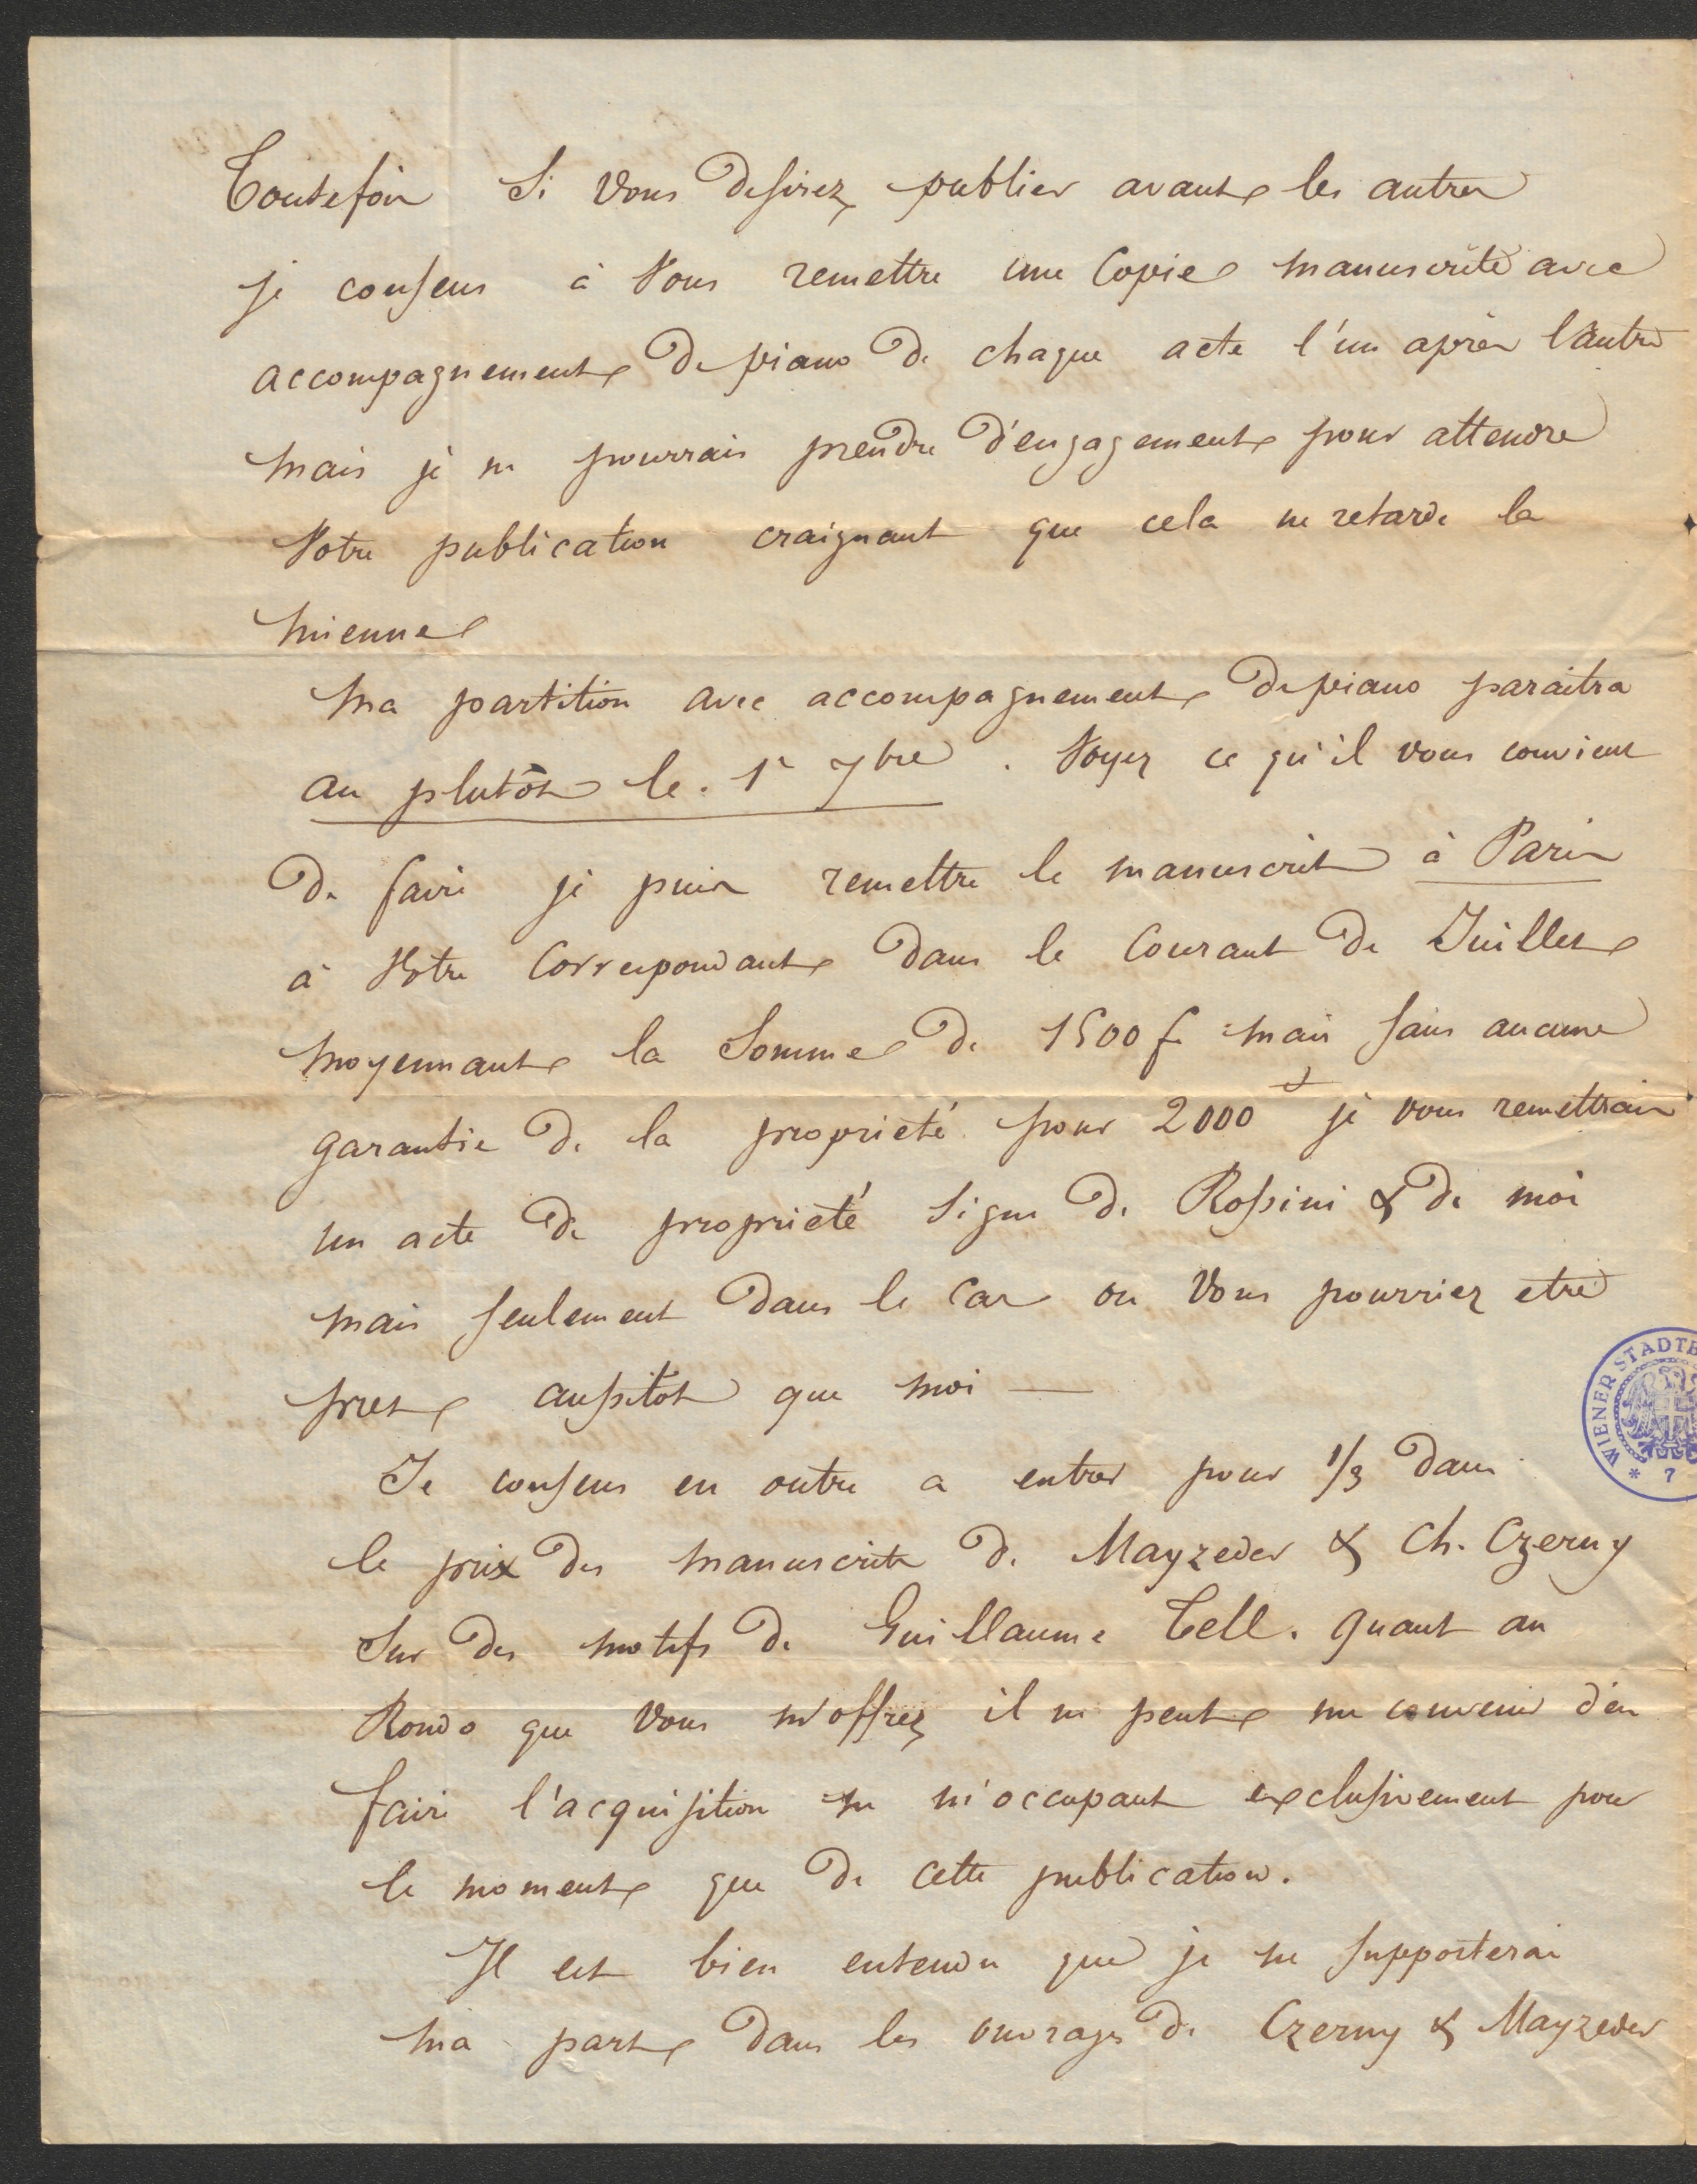 Toutefois Si Vous desirez publier avant les autres
je consens à Vous remettre une Copie manuscrite avec
accompagnement de piano de chaque acte l'un après l'autre
mais je ne pourrais prendre d'engagement pour attendre
Votre publication craignant que cela ne retarde la
mienne
Ma partition avec accompagnement de piano paraitra
au plutôt le. 1r 7bre. Voyez ce qu'il vous convient
de faire je puis remettre le manuscrit à Paris
à Votre Correspondant dans le Courant de Juillet
moyennant la Somme de 1500 f. mais sans aucune
garantie de la propriété pour 2000 f je vous remettrais
un acte de propriété Signe de Rossini & de moi
mais seulement dans le Cas ou Vous pourriez etre
pret aussitot que moi —
Je consens en outre a entrer pour 1/3 dans
le prix des manuscrits de Mayzeder & Ch. Czerny
Sur des motifs de Guillaume Tell. quant au
Rondo que Vous m'offrez il ne peut me convenir d'en
faire l'acquisition ne m'occupant exclusivement pour
le moment que de cette publication.
Il est bien entendu que je ne supporterai
ma part dans les ouvrages de Czerny & Mayzeder
WIENER STADTB
* 7